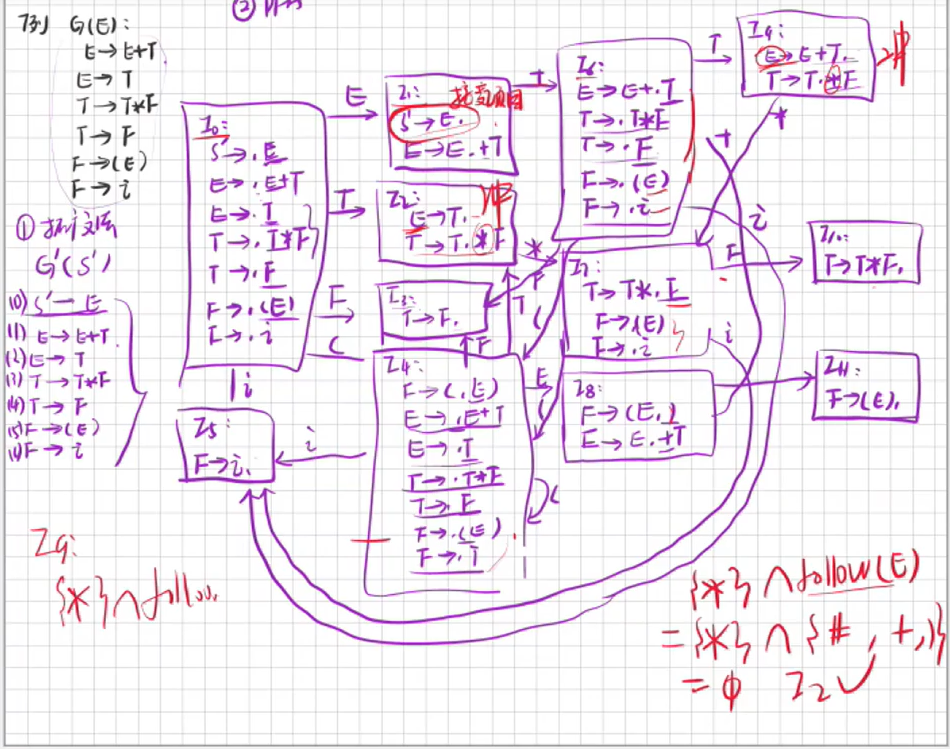 例 G(E):
E→E+T
E→T
T→T*F
T→F
F→(E)
F→i
①拓广文法
G'(S')
(0) S'→E
(1) E→E+T
(2) E→T
(3) T→T*F
(4) T→F
(5) F→(E)
(6) F→i
②
I0:
S'→.E
E→.E+T
E→.T
T→.T*F
T→.F
F→.(E)
F→.i
E
T
F
(
i
I1:
接受项目
S'→E.
E→E.+T
I2:
冲
E→T.
T→T.*F
I3:
T→F.
I4:
F→(.E)
E→.E+T
E→.T
T→.T*F
T→.F
F→.(E)
F→.i
I5:
F→i.
i
F
T
E
(
+
I6:
E→E+.T
T→.T*F
T→.F
F→.(E)
F→.i
*
F
(
I7:
T→T*.F
F→(E)
F→.i
(
I8:
F→(E.)
E→E.+T
T
I9:
E→E+T.
T→T.*F
冲
*
+
i
F
i
I10:
T→T*F.
I11:
F→(E).
I9:
{*}∩follow
{*}∩follow(E)
={*}∩{#,+,)}
=φ I2✓